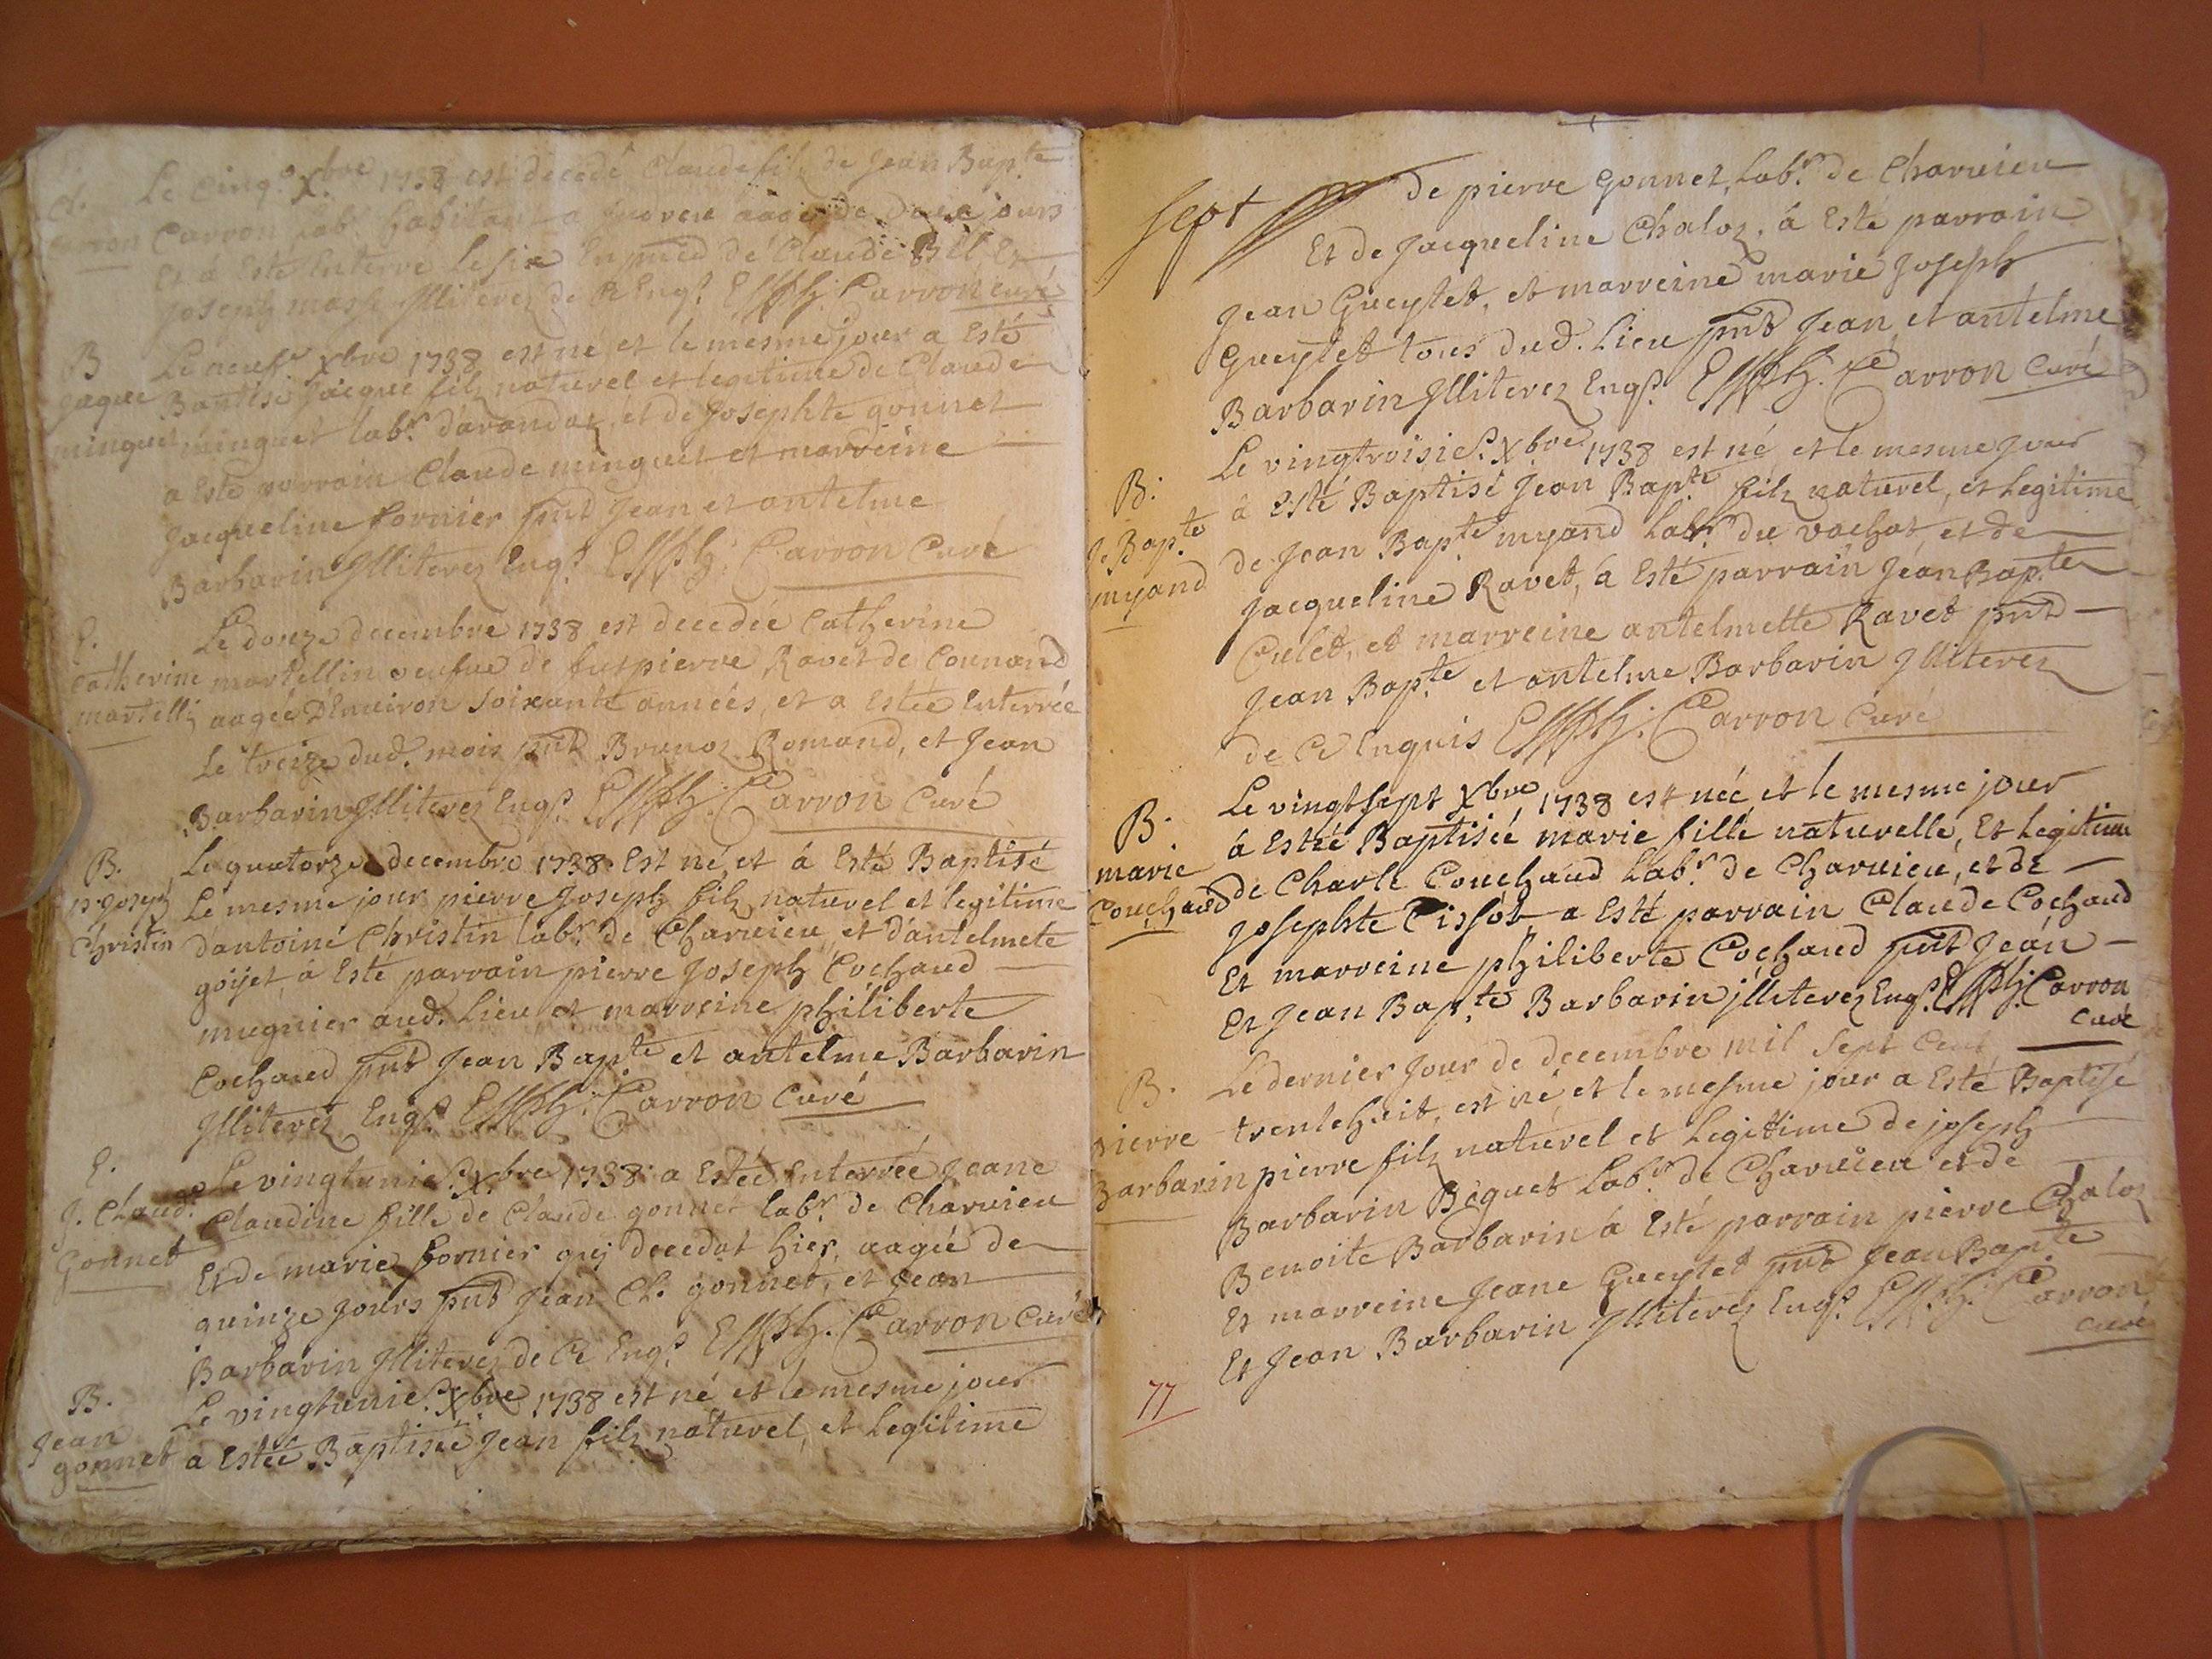 Le Cinq.e Xbre 1738 est decedé Claude fils de Jean Bapte
Carron lab.r habitant a aagé de deux jours
Et a Esté Enterré le six En pnce de Claude Et
Joseph Illiterez de Ce Enq.s Carron curé
B Le neufe Xbre 1738 est né et le mesme jour a Esté
Jaque Bautisé Jacque filz naturel et legitime de Claude
minguet minguet lab.r d'arandaz, et de Josephte gonnet
a Esté parrain Claude minguet et marreine
Jacqueline fornier pnt Jean et antelme
Barbarin Illiterez Enq.s Carron Curé
E. Le douze decembre 1738 est decedée Catherine
Catherine martellin veufue de fut pierre Ravet de Counand
martelli aagée D'Enuiron soixante années, et a estée Enterrée
Le treize dud. mois pnt Brunoz Romand, et Jean
Barbarin Illiterez Enq.s Carron Curé
B. Le quatorze decembre 1738 Est né, et á Esté Baptisé
p. Joseph Le mesme jour pierre Joseph filz naturel et legitime
Christin d'antoine Christin lab.r de Charuieu, et d'antelmete
goijet, á Esté parrain pierre Joseph Cochaud
mugnier aud. Lieu et marreine philiberte
Cochaud pnt Jean Bapte et antelme Barbarin
Illiterez Enq.s Carron Curé
E. Le vingtunie.e Xbre 1738 a Estée Enterrée Jeane
J. Claud.e Claudine fille de Claude gonnet lab.r de Charuieu
Gonnet Et de marie fornier qui decedat hier, aagée de
quinze jours pnt Jean Cl. gonnet, et Jean
Barbarin Illiterez de Ce Enq.s Carron Curé
B. Le vingtunie.e Xbre 1738 est né et le mesme jour
Jean
gonnet a Estée Baptisé Jean filz naturel, et Legitime
sept de pierre Gonnet, Lab.r de Charuieu
Et de Jacqueline Chaloz, á Esté parrain
Jean Gueytet, et marreine marie Joseph
Gueytet tous dud. Lieu pnt Jean, et antelme
Barbarin Illiterez Enq.s Carron Curé
Le vingtroisie.e Xbre 1738 est né et le mesme jour
B. á Esté Baptisé Jean Bapte filz naturel, et Legitime
J. Bapte de Jean Bapte myand Lab.r du vachat, et de
myand Jacqueline Ravet, á Esté parrain Jean Bapte
Culet, et marreine antelmette Ravet pnt
Jean Bapte et antelme Barbarin Illiterez
de Ce Enquis Carron Curé
Le vingtsept Xbre 1738 est née et le mesme jour
B. á Estée Baptisée marie fille naturelle, Et Legitime
marie de Charle Couchaud Lab.r de Charuieu, et de
Couchaud Josephte Tissot, a Esté parrain Claude Cochaud
Et marreine philiberte Cochaud pnt Jean
Et Jean Bapte Barbarin jlliterez Enq.s Carron
curé
B. Le dernier Jour de decembre mil Sept Cent
pierre trentehuit, est né, et le mesme jour a Esté Baptisé
Barbarin pierre filz naturel et Legittime de joseph
Barbarin Béguet Lab.r de Charuieu et de
Benoite Barbarin á Esté parrain pierre Chaloz
Et marreine Jeane Gueytet pnt Jean Bapte
Et Jean Barbarin Illiterez Enq.s Carron
curé
77